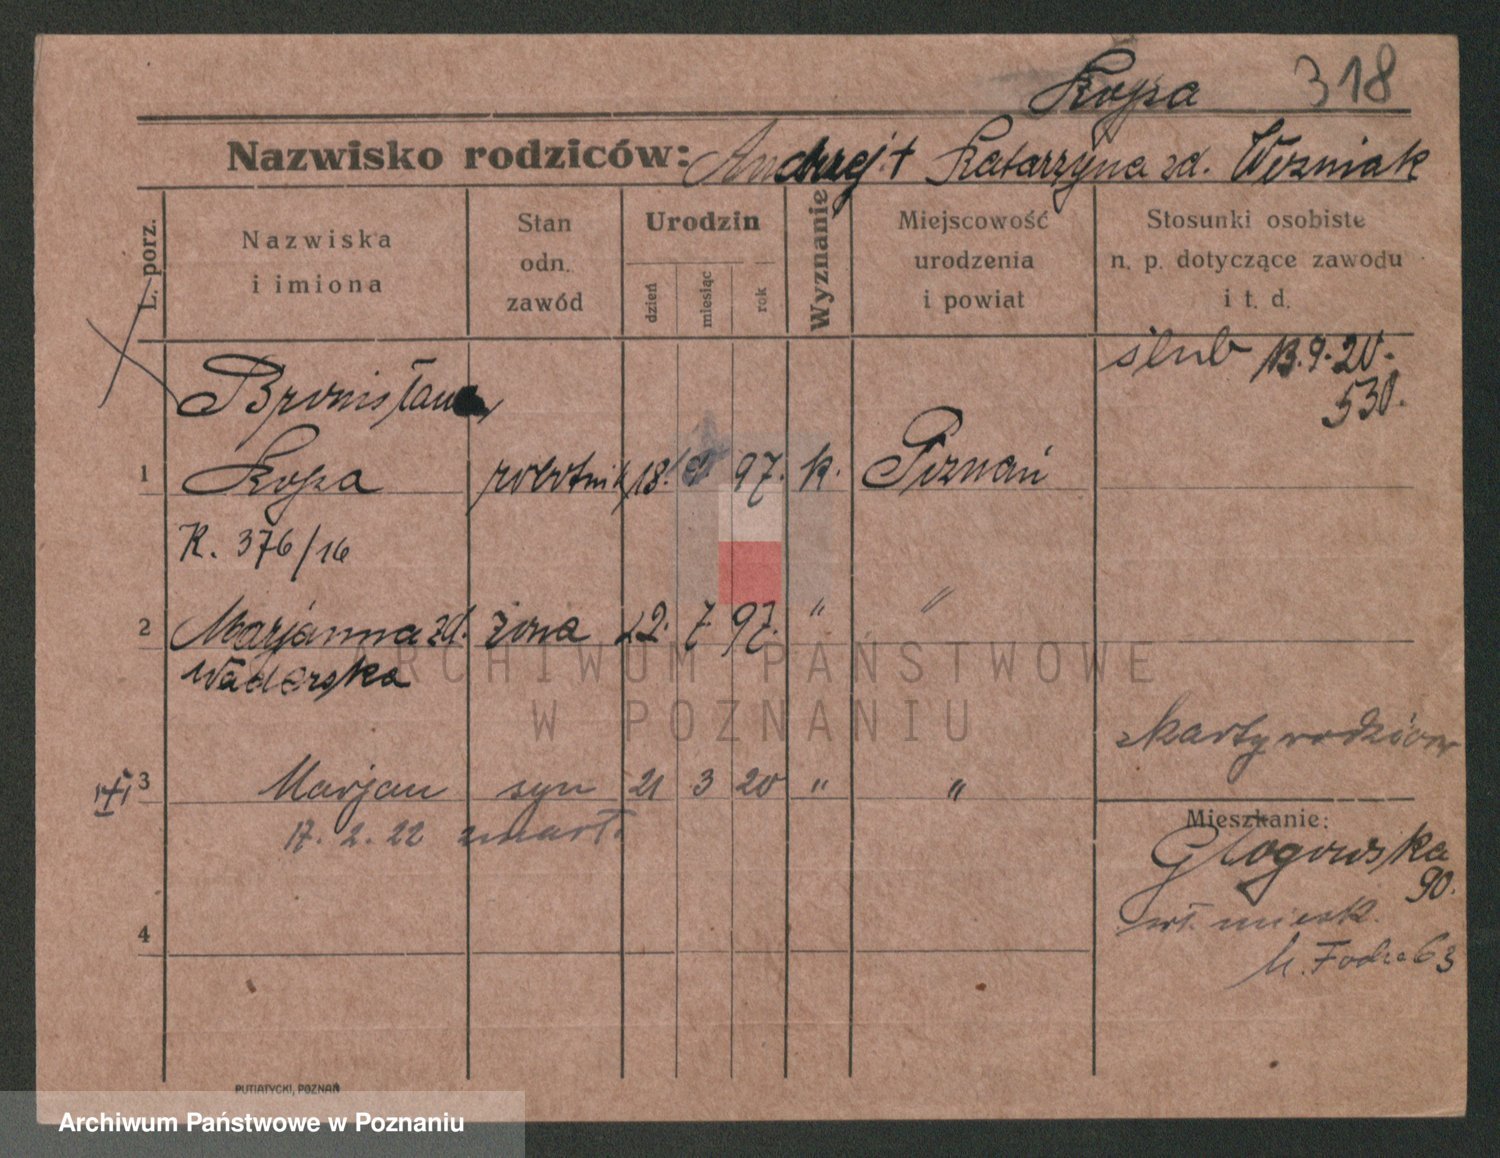 Kopza 318
Nazwisko rodziców: Andrzej † Katarzyna zd. Woźniak
L. porz.
Nazwiska
i imiona
Stan
odn.
zawód
Urodzin
dzień
miesiąc
rok
Wyznanie
Miejscowość
urodzenia
i powiat
Stosunki osobiste
n. p. dotyczące zawodu
i t. d.
ślub 13.9.20.
530.
Bronisław
1 Kopza robotnik 18. 97. k. Poznań
K. 376/16
2 Marjanna zd. żona 22. 7. 97. " "
Waderska
z karty rodziców
3 Marjan syn 21 3 20 " "
17. 2. 22 zmarł.
Mieszkanie:
Głogowska
90.
wł. mieszk.
M. Focha 63
4
PUTIATYCKI, POZNAŃ
ARCHIWUM PAŃSTWOWE
W POZNANIU
Archiwum Państwowe w Poznaniu